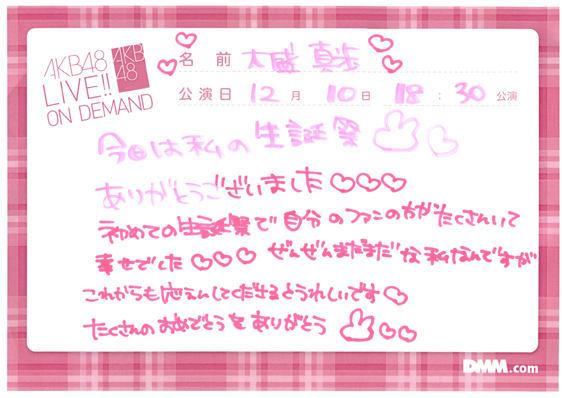 AKB48
LIVE!!
ON DEMAND
AKB
48
名 前 大盛 真歩
公演日 12 月 10 日 18 : 30 公演
今日は私の生誕祭
ありがとうございました♡♡♡
初めての生誕祭で自分のファンのかたがたくさんいて
幸せでした♡♡♡ ぜんぜんまだまだな私なんですが
これからも応えんしてくださるとうれしいです♡
たくさんのおめでとうをありがとう ♡♡
DMM.com